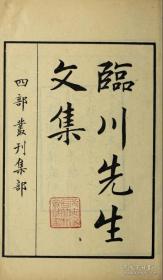 臨川先生
文集
四部叢刊集部